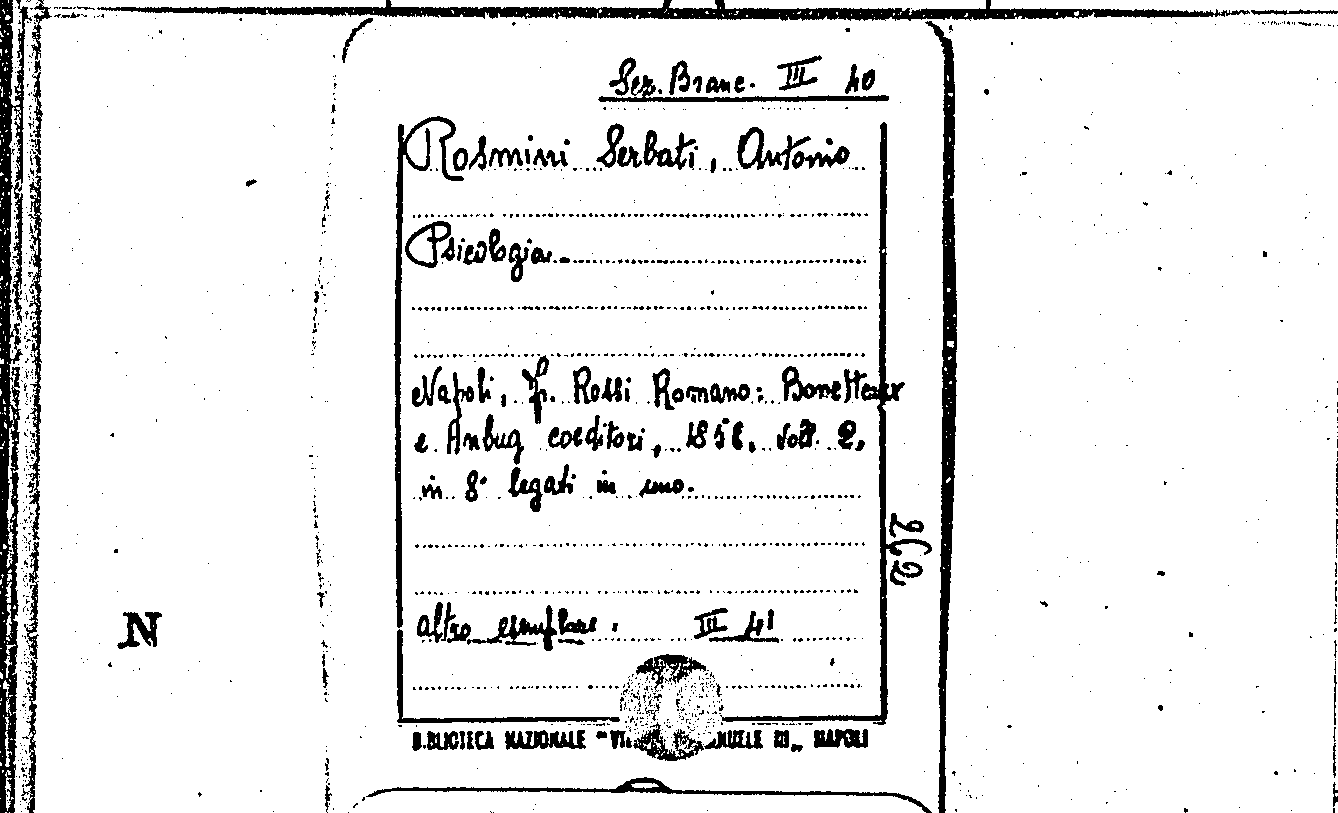 Sez. Branc. III 40
Rosmini Serbati, Antonio
Psicologia.
Napoli, Fr. Rossi Romano: Bonetteux
e Anbug coeditori, 1858. voll. 2,
in 8° legati in uno.
262
altro esemplare. III 41
BIBLIOTECA NAZIONALE "VI ANUELE III„ NAPOLI
N